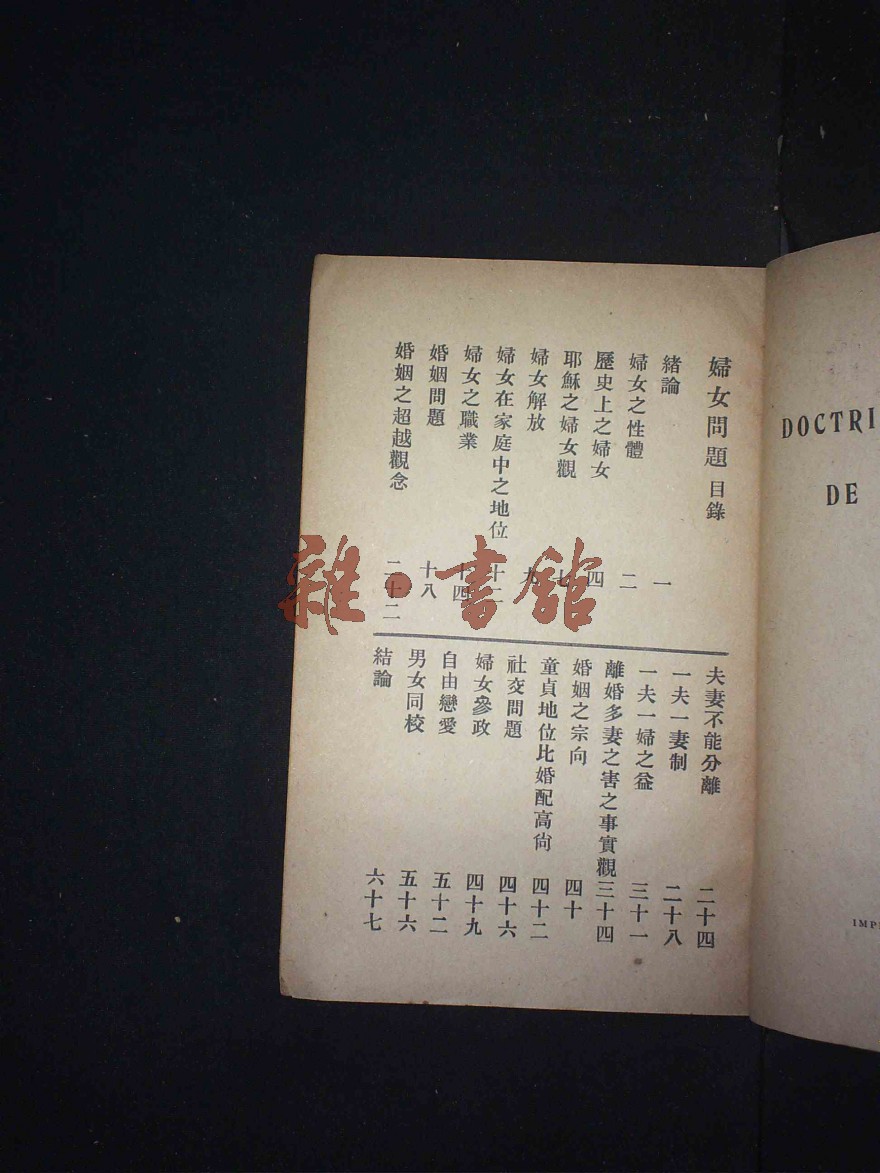 婦女問題 目錄
緒論 一
婦女之性體 二
歷史上之婦女 四
耶穌之婦女觀 七
婦女解放 九
婦女在家庭中之地位 十二
婦女之職業 十四
婚姻問題 十八
婚姻之超越觀念 二十二
夫妻不能分離 二十四
一夫一妻制 二十八
一夫一婦之益 三十一
離婚多妻之害之事實觀 三十四
婚姻之宗向 四十
童貞地位比婚配高尙 四十二
社交問題 四十六
婦女參政 四十九
自由戀愛 五十二
男女同校 五十六
結論 六十七
雜·書館
DOCTRI
DE
IMP